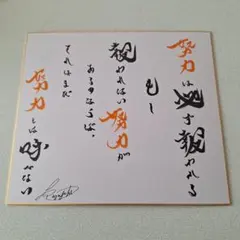 努力は必ず報われる
もし
報われない努力が
あるのならば、
それはまだ
努力とは呼べない